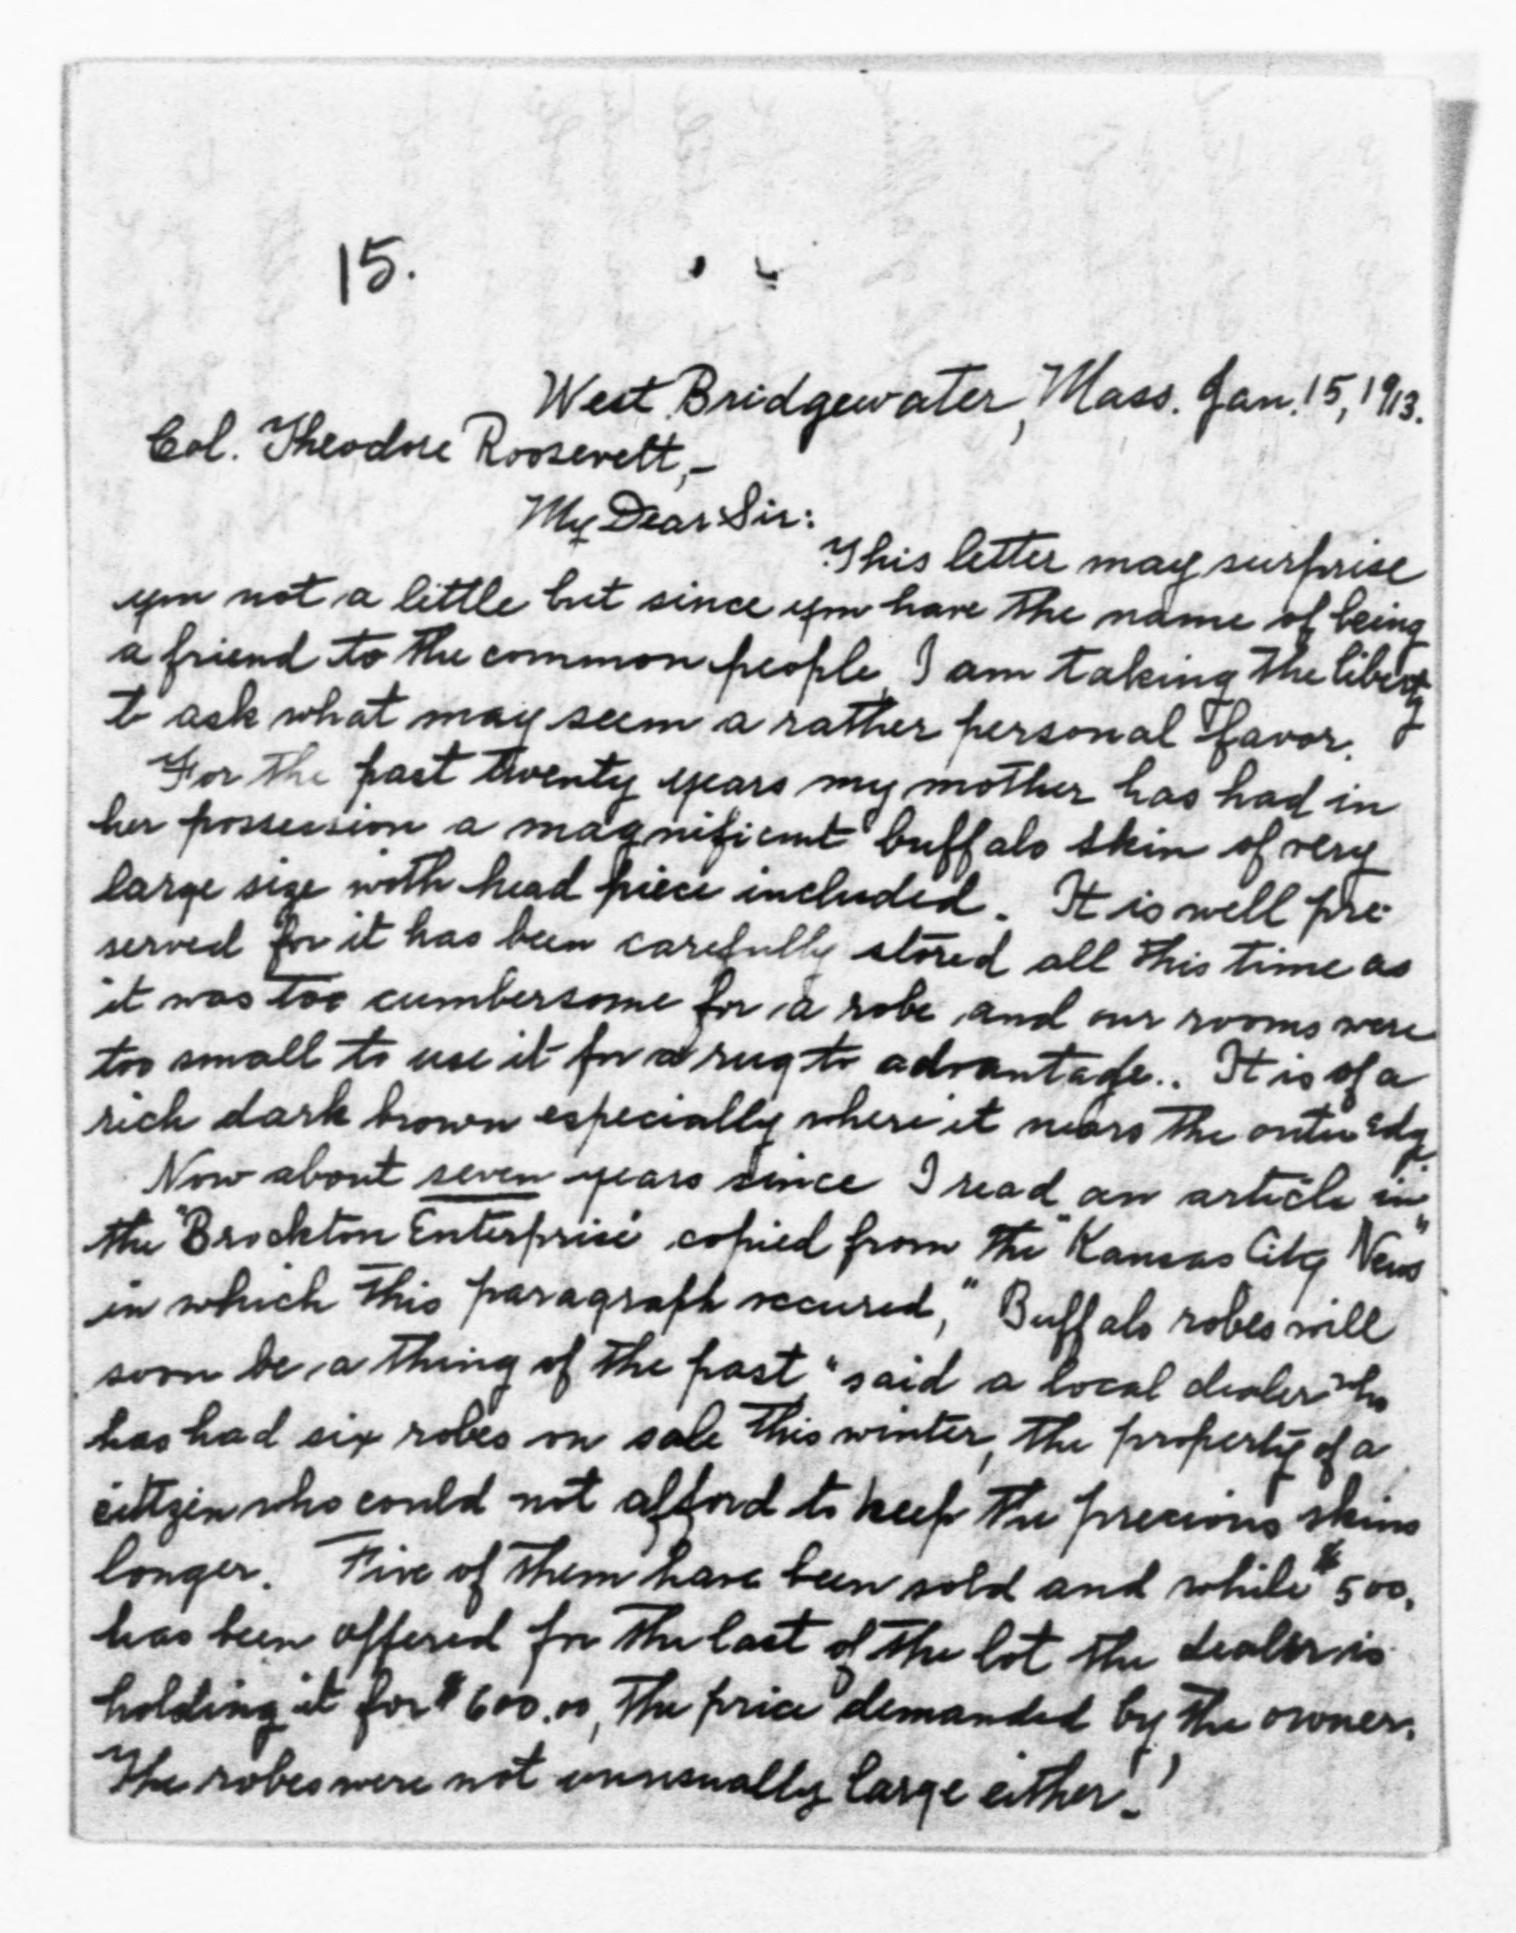 15.
West Bridgewater, Mass. Jan. 15, 1913.
Col. Theodore Roosevelt,-
My Dear Sir:
This letter may surprise
you not a little but since you have the name of being
a friend to the common people, I am taking the liberty
to ask what may seem a rather personal favor.
For the past twenty years my mother has had in
her possession a magnificent buffalo skin of very
large size with head piece included. It is well pre-
served for it has been carefully stored all this time as
it was too cumbersome for a robe and our rooms were
too small to use it for a rug to advantage.. It is of a
rich dark brown especially where it nears the outer edg
Now about seven years since I read an article in
the "Brockton Enterprise" copied from the "Kansas City News"
in which this paragraph occured, "Buffalo robes will
soon be a thing of the past" said a local dealer who
has had six robes on sale this winter, the property of a
citizen who could not afford to keep the precious skins
longer. Five of them have been sold and while $500.
has been offered for the last of the lot the dealer is
holding it for $600.00, the price demanded by the owner.
The robes were not unusually large either.'